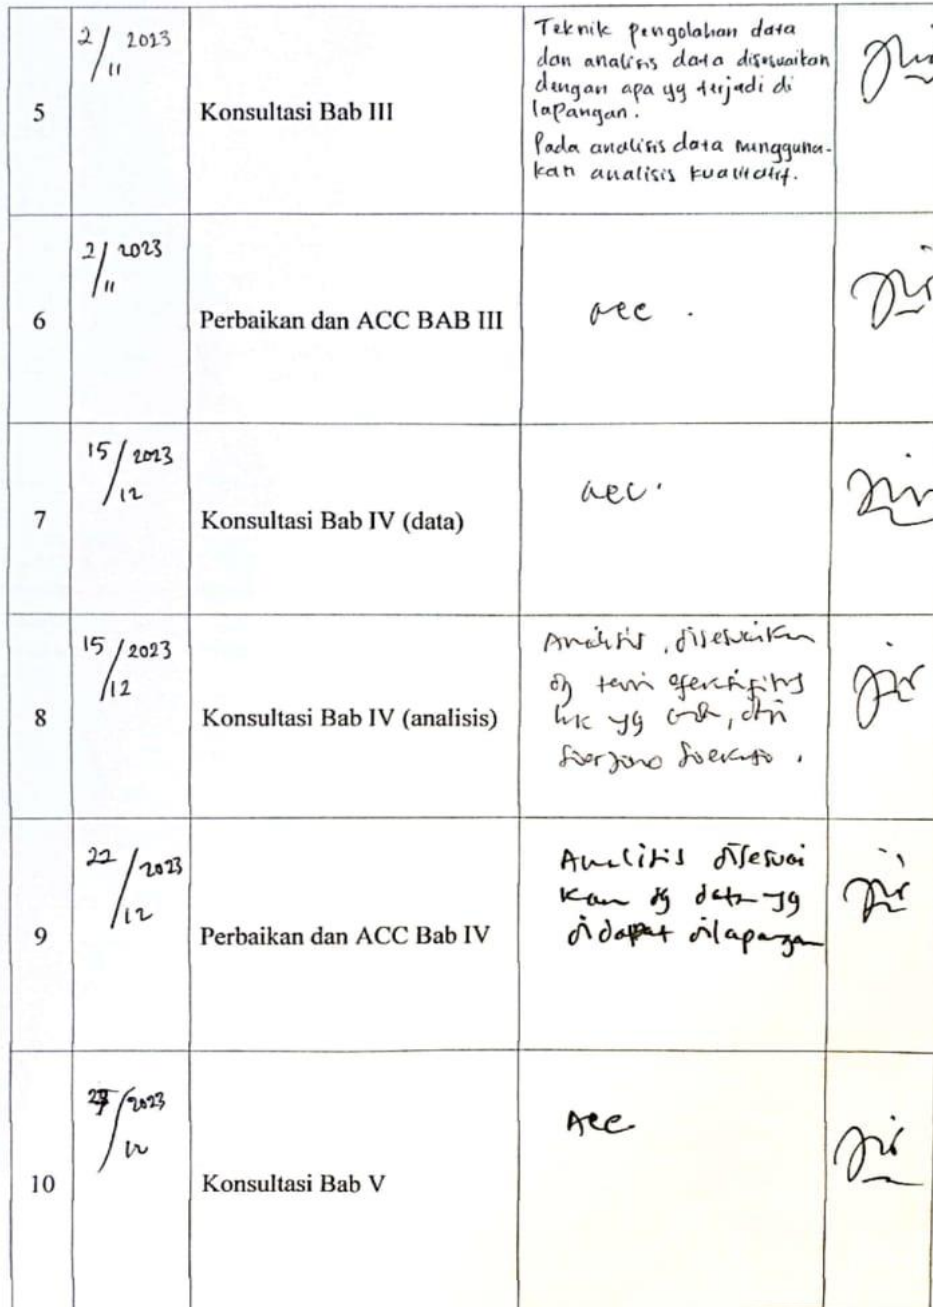 5
2/11 2023
Konsultasi Bab III
Teknik pengolahan data
dan analisis data disesuaikan
dengan apa yg terjadi di
lapangan.
Pada analisis data mengguna-
kan analisis kualitatif.
6
2/11 2023
Perbaikan dan ACC BAB III
acc .
7
15/12 2023
Konsultasi Bab IV (data)
acc.
8
15/12 2023
Konsultasi Bab IV (analisis)
Analisis, disesuaikan
dg teori efektifitas
yg, dri
Soerjono Soekanto .
9
22/12 2023
Perbaikan dan ACC Bab IV
Analisis disesuai
kan dg data yg
didapat dilapangan
10
/12 2023
Konsultasi Bab V
Acc